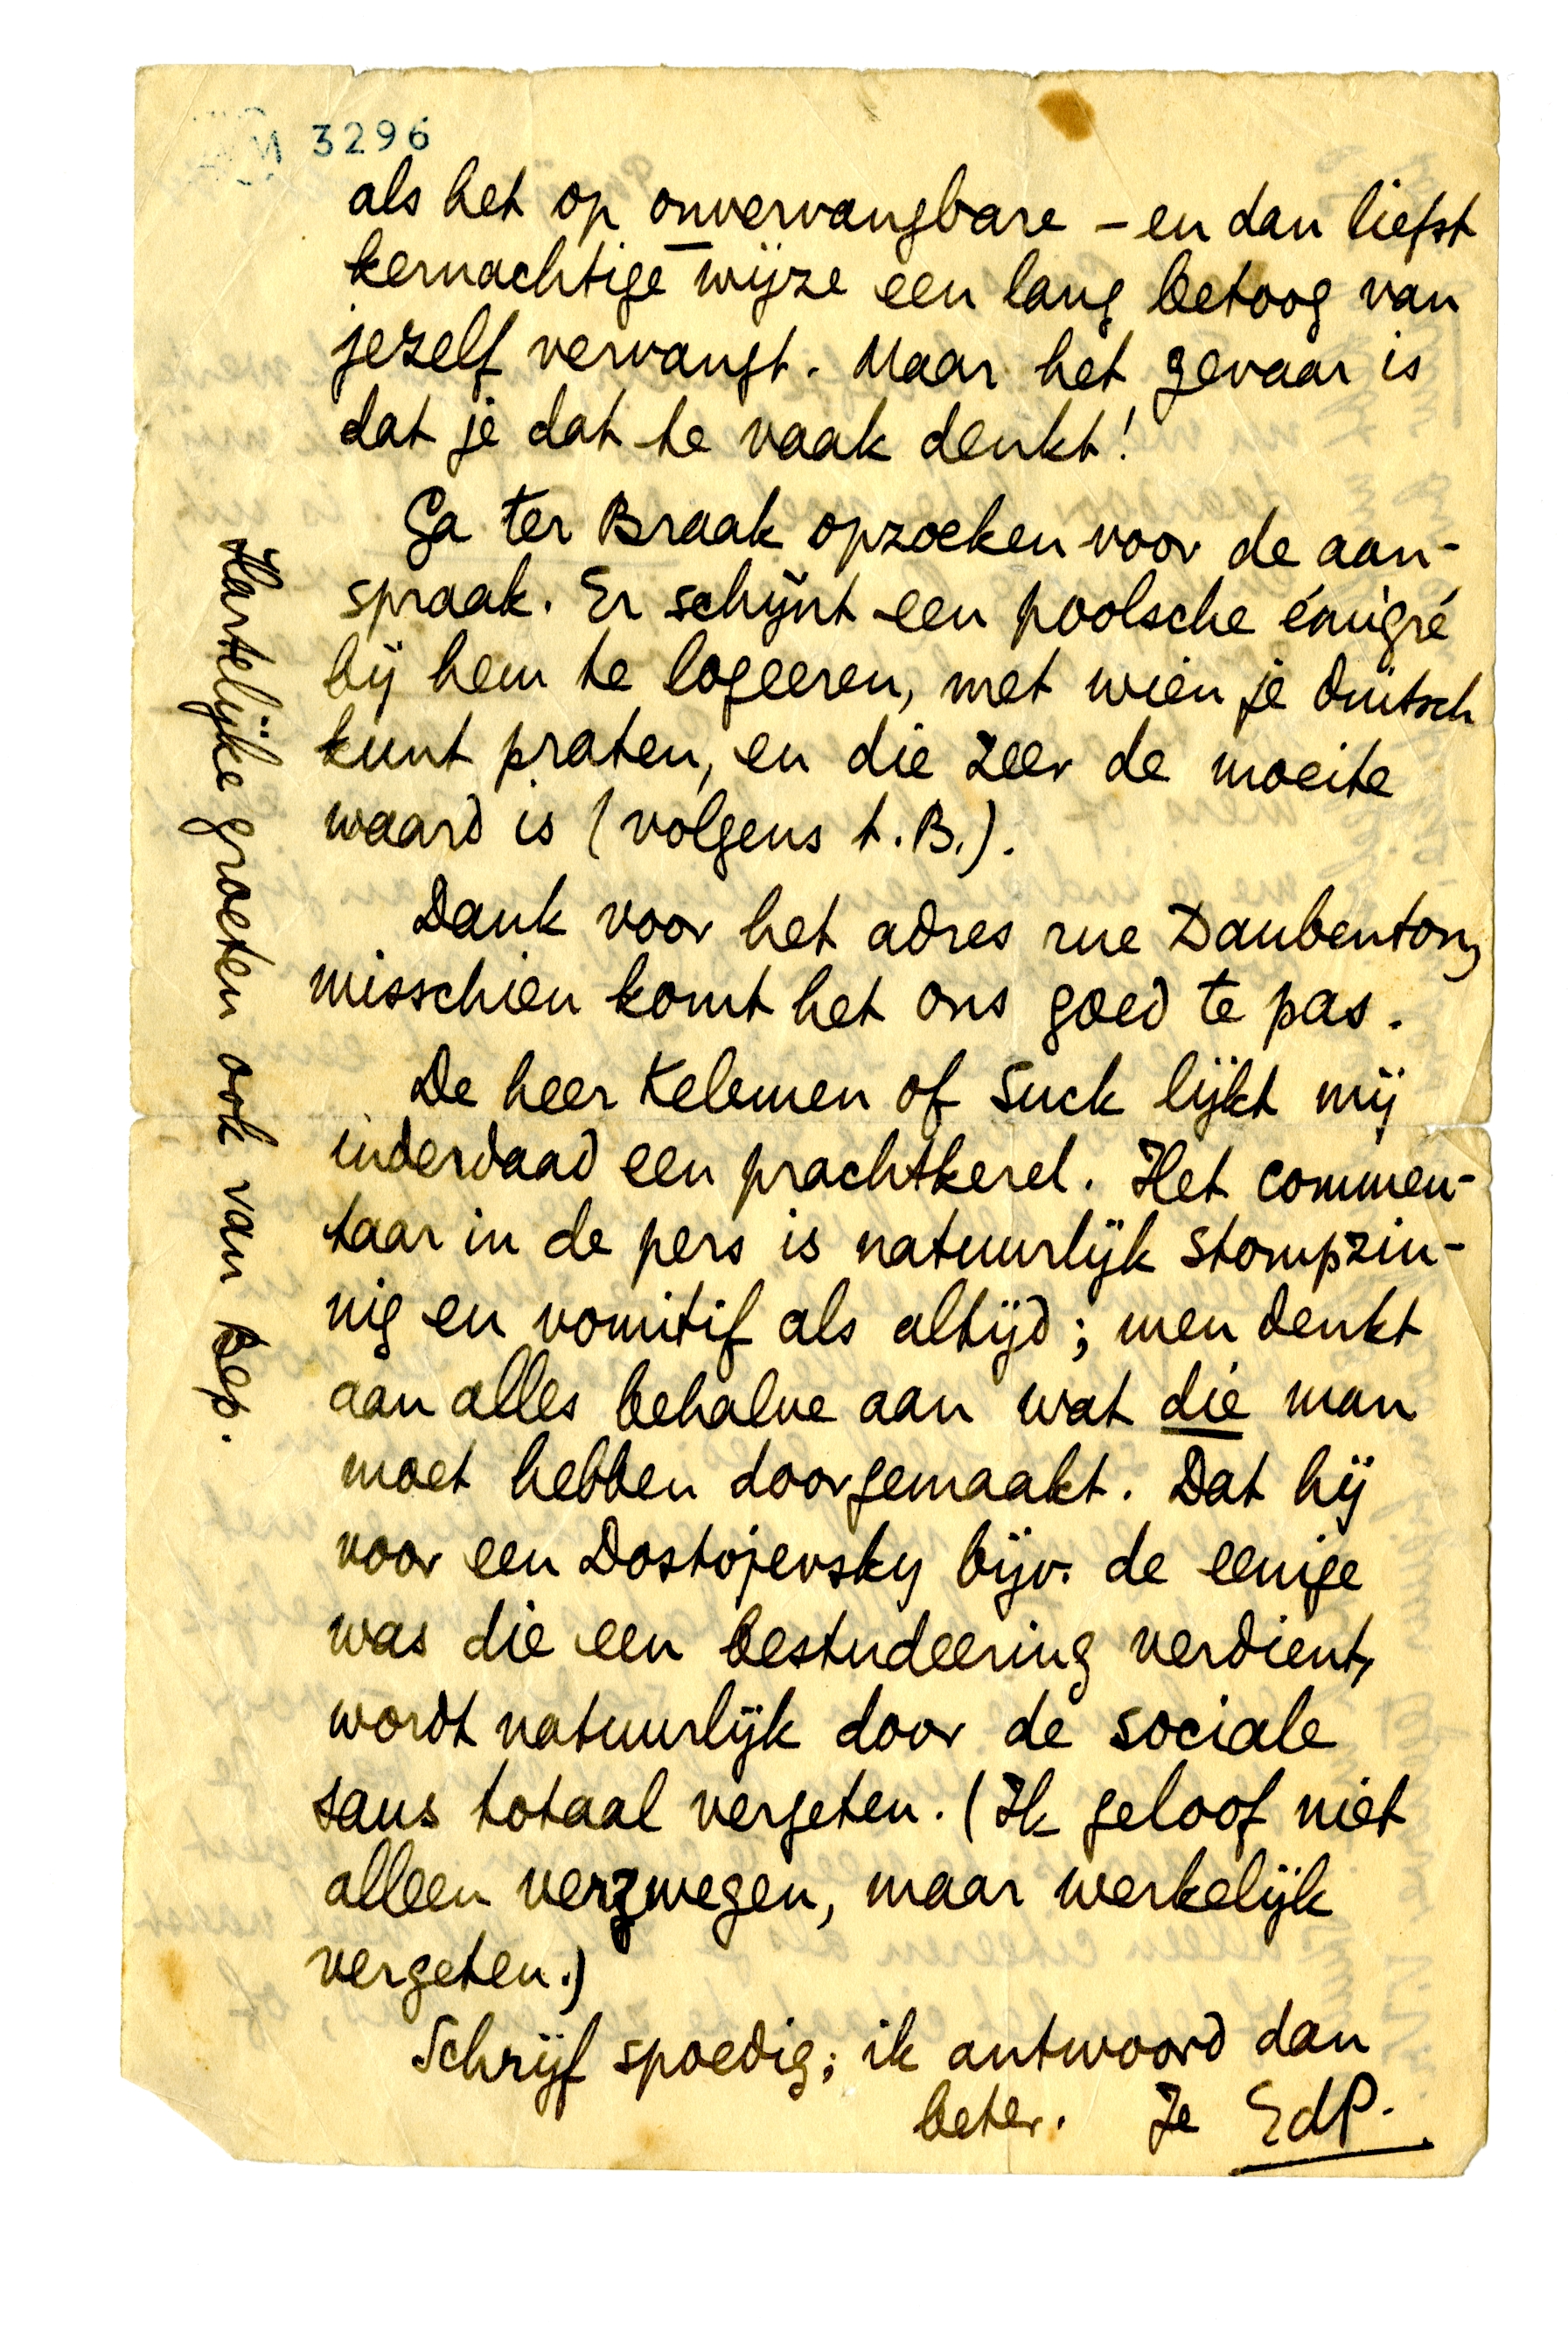 3296
als het op onvervangbare – en dan liefst
kernachtige wijze een lang betoog van
jezelf vervangt. Maar het gevaar is
dat je dat te vaak denkt!
Ga ter Braak opzoeken voor de aan-
spraak. Er schijnt een poolsche émigré
bij hem te logeeren, met wien je duitsch
kunt praten, en die zeer de moeite
waard is (volgens t.B.).
Dank voor het adres rue Daubenton,
misschien komt het ons goed te pas.
De heer Kelemen of Suck lijkt mij
inderdaad een prachtkerel. Het commen-
taar in de pers is natuurlijk stompzin-
nig en vomitif als altijd; men denkt
aan alles behalve aan wat die man
moet hebben doorgemaakt. Dat hij
voor een Dostojevsky bijv. de eenige
was die een bestudeering verdient,
wordt natuurlijk door de sociale
saus totaal vergeten. (Ik geloof niet
alleen verzwegen, maar werkelijk
vergeten.)
Schrijf spoedig; ik antwoord dan
beter. Je EdP.
Hartelijke groeten ook van Bep.